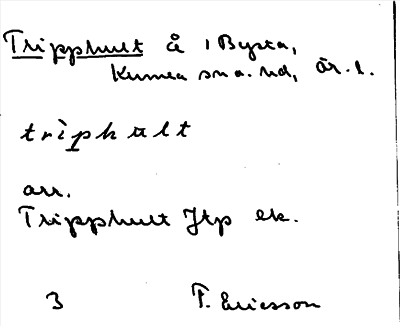 Tripphult å i Bysta,
Kumla sn o. hd, Ör. l.
trìphult
arr.
Tripphult Jtp ek.
3 T. Ericsson